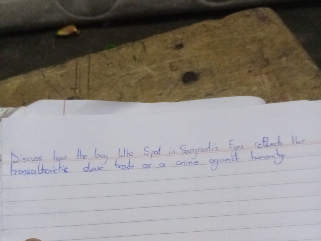 Discuss how the boy who Spat in Sargrenti's Eyes reflects the
transatlantic slave trade as a crime against humanity